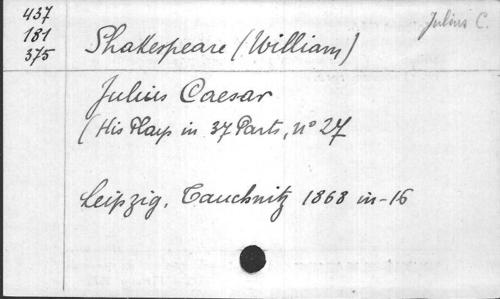 437
181
375
Julius C.
Shakespeare (William)
Julius Caesar
(His Plays in 37 Parts, n° 27
Leipzig, Tauchnitz 1868 in-16